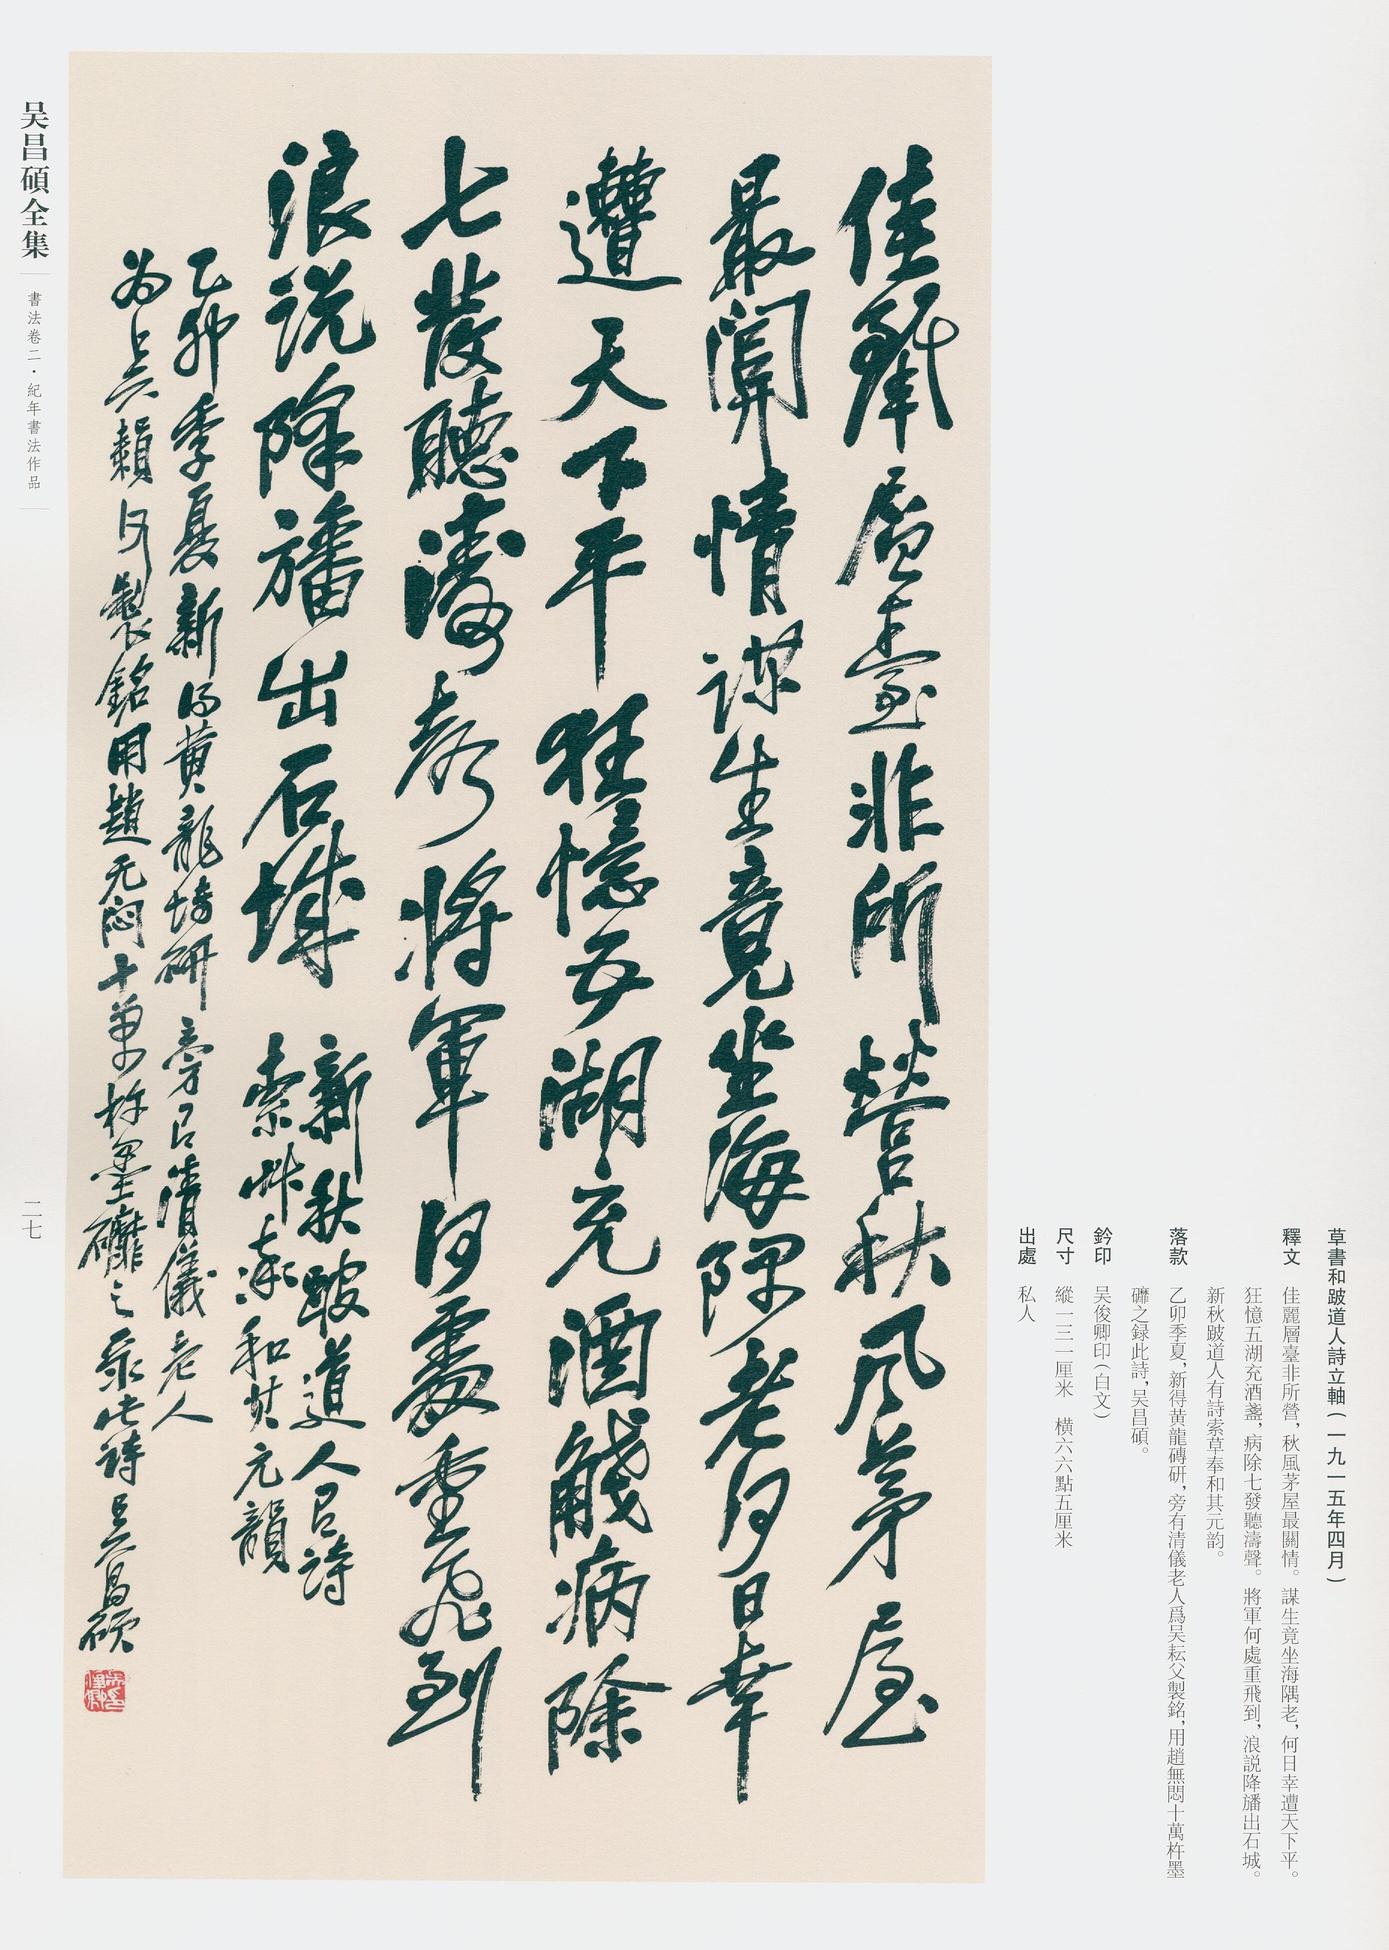 草書和跛道人詩立軸(一九一五年四月)
釋文 佳麗層臺非所營,秋風茅屋最關情。謀生竟坐海隅老,何日幸遭天下平。
狂憶五湖充酒盞,病除七發聽濤聲。將軍何處重飛到,浪説降旛出石城。
新秋跛道人有詩索草奉和其元韵。
落款 乙卯季夏,新得黄龍磚研,旁有清儀老人爲吴耘父製銘,用趙無悶十萬杵墨
礳之録此詩,吴昌碩。
鈐印 吴俊卿印(白文)
尺寸 縱一三一厘米 横六六點五厘米
出處 私人
佳麗層臺非所營秋風茅屋
最關情謀生竟坐海隅老何日幸
遭天下平狂憶五湖充酒盞病除
七發聽濤聲將軍何處重飛到
浪说降旛出石城
新秋跛道人有詩
索艸奉和其元韻
乙卯季夏新得黄龍塼研旁有清儀老人
為吴耘父製銘用趙无悶十萬杵墨礳之录此詩吴昌碩
吴昌碩全集
書法卷二·紀年書法作品
二七